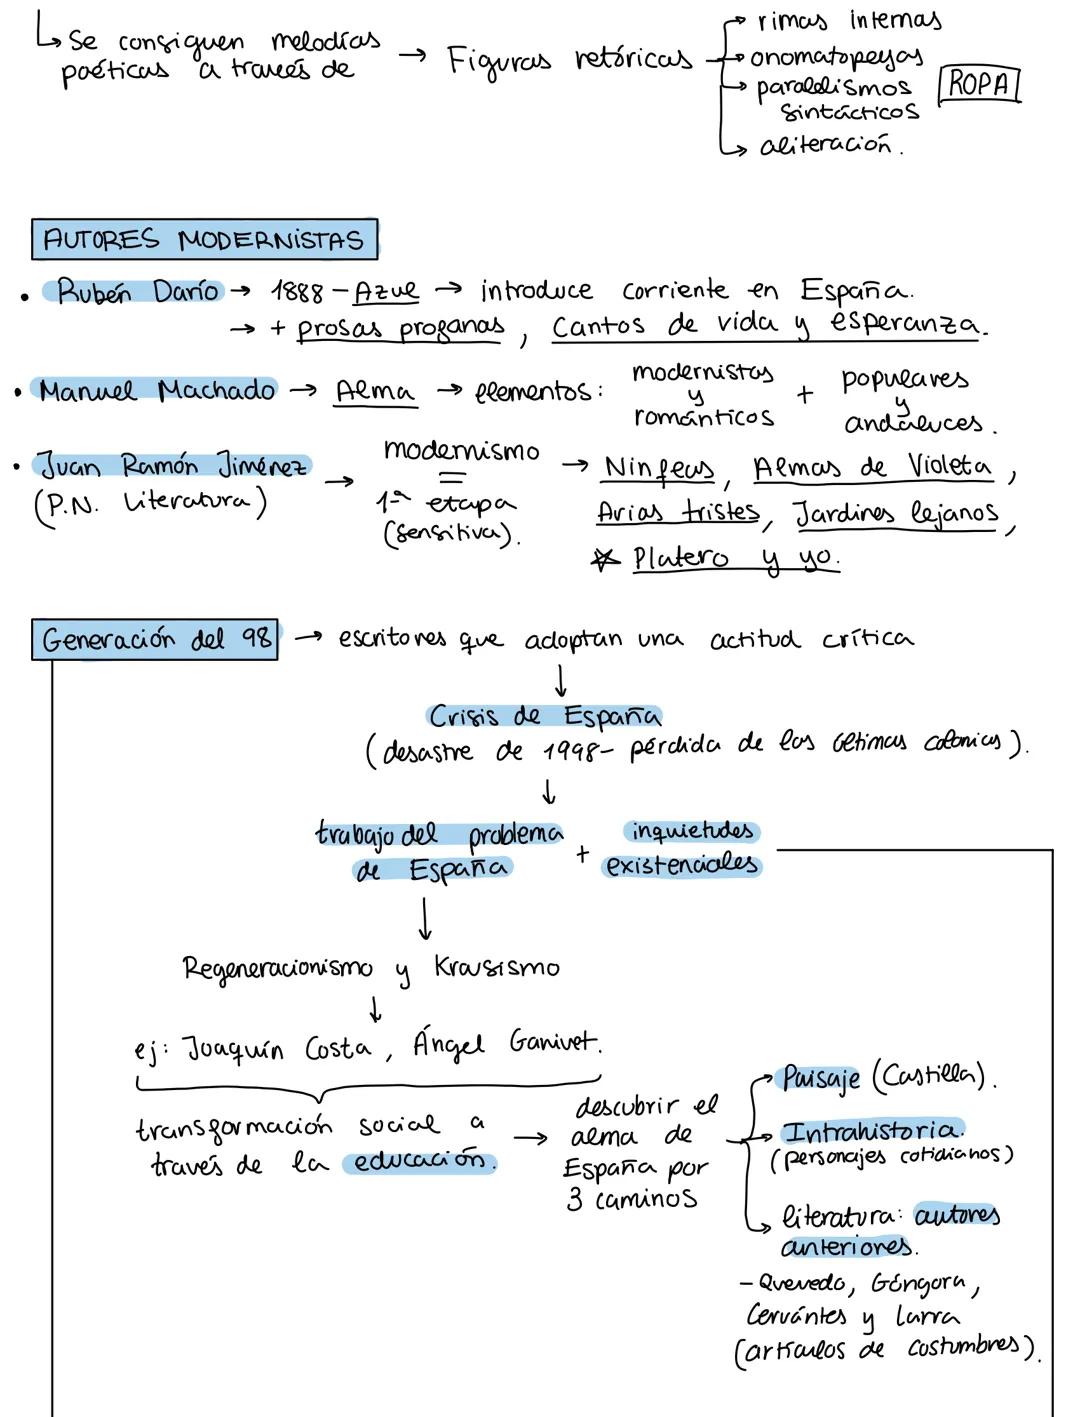 ↳ Se consiguen melodías → Figuras retóricas → rimas internas
poéticas a través de → onomatopeyas
→ paralelismos sintácticos ROPA
→ aliteración.
AUTORES MODERNISTAS
• Rubén Darío → 1888 - Azul → introduce corriente en España.
→ + prosas profanas, Cantos de vida y esperanza.
• Manuel Machado → Alma → elementos: modernistas y románticos + populares y andaluces.
• Juan Ramón Jiménez (P.N. Literatura) → modernismo = 1ª etapa (sensitiva). → Ninfeas, Almas de Violeta,
Arias tristes, Jardines lejanos,
☆ Platero y yo.
Generación del 98 → escritores que adoptan una actitud crítica
↓
Crisis de España
(desastre de 1998 - pérdida de las últimas colonias).
↓
trabajo del problema de España + inquietudes existenciales
↓
Regeneracionismo y Krausismo
↓
ej: Joaquín Costa, Ángel Ganivet.
transformación social a
través de la educación.
→ descubrir el
alma de
España por
3 caminos
→ Paisaje (Castilla).
→ Intrahistoria.
(personajes cotidianos)
→ literatura: autores
anteriores.
- Quevedo, Góngora,
Cervántes y Larra
(artículos de costumbres).